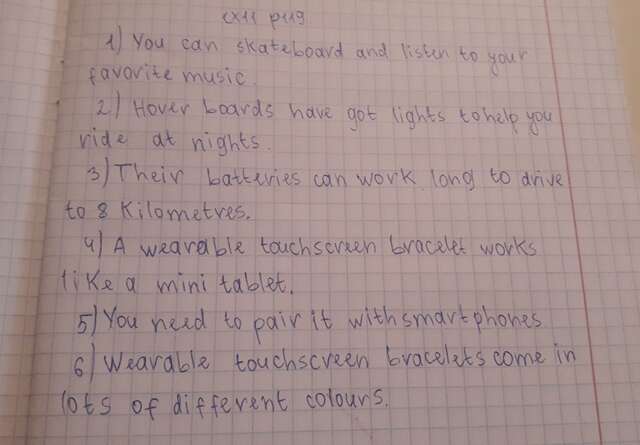 ex11 p119
1) You can skateboard and listen to your
favorite music.
2) Hover boards have got lights to help you
ride at nights.
3) Their batteries can work long to drive
to 8 Kilometres.
4) A wearable touchscreen bracelet works
like a mini tablet.
5) You need to pair it with smartphones
6) Wearable touchscreen bracelets come in
lots of different colours.